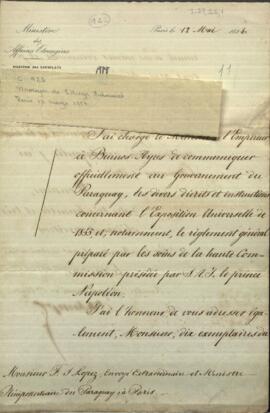 Ministère
des
Affaires Etrangères
Paris le 18 Mai 1854
11
J'ai chargé le Ministre de l'Empereur
à Buenos Ayres de communiquer
officiellement au Gouvernement du
Paraguay, les divers décrets et instructions
concernant l'Exposition Universelle de
1855 et, notamment, le règlement général
préparé par les soins de la haute Com-
mission présidée par S. A. I. le prince
Napoléon.
J'ai l'honneur de vous adresser éga-
lement, Monsieur, dix exemplaires du
Monsieur F. S. Lopez, Envoyé Extraordinaire et Ministre
Plénipotentiaire du Paraguay à Paris